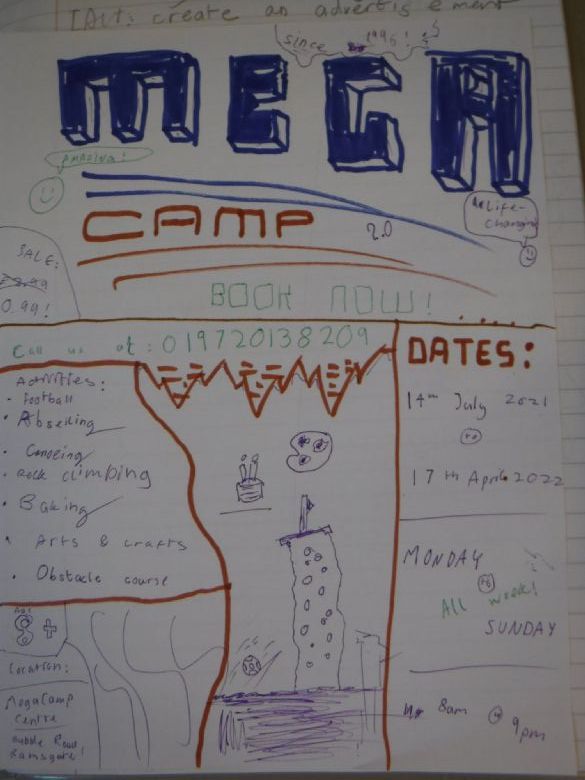 LALT: create an advertisement
since 1996!
MEGA
AMAZING!
CAMP
2.0
"Life-
Changing
SALE:
£2.99
0.99!
BOOK NOW!
Call us at: 019720138209
DATES:
Activities:
• Football
• Abseiling
• Canoeing
• Rock climbing
• Baking
• Arts & crafts
• Obstacle course
14th July 2021
to
17th April 2022
MONDAY
to
All week!
SUNDAY
8am
9pm
AGE:
8+
Location:
MegaCamp
Centre
Bubble Road
Ramsgate!